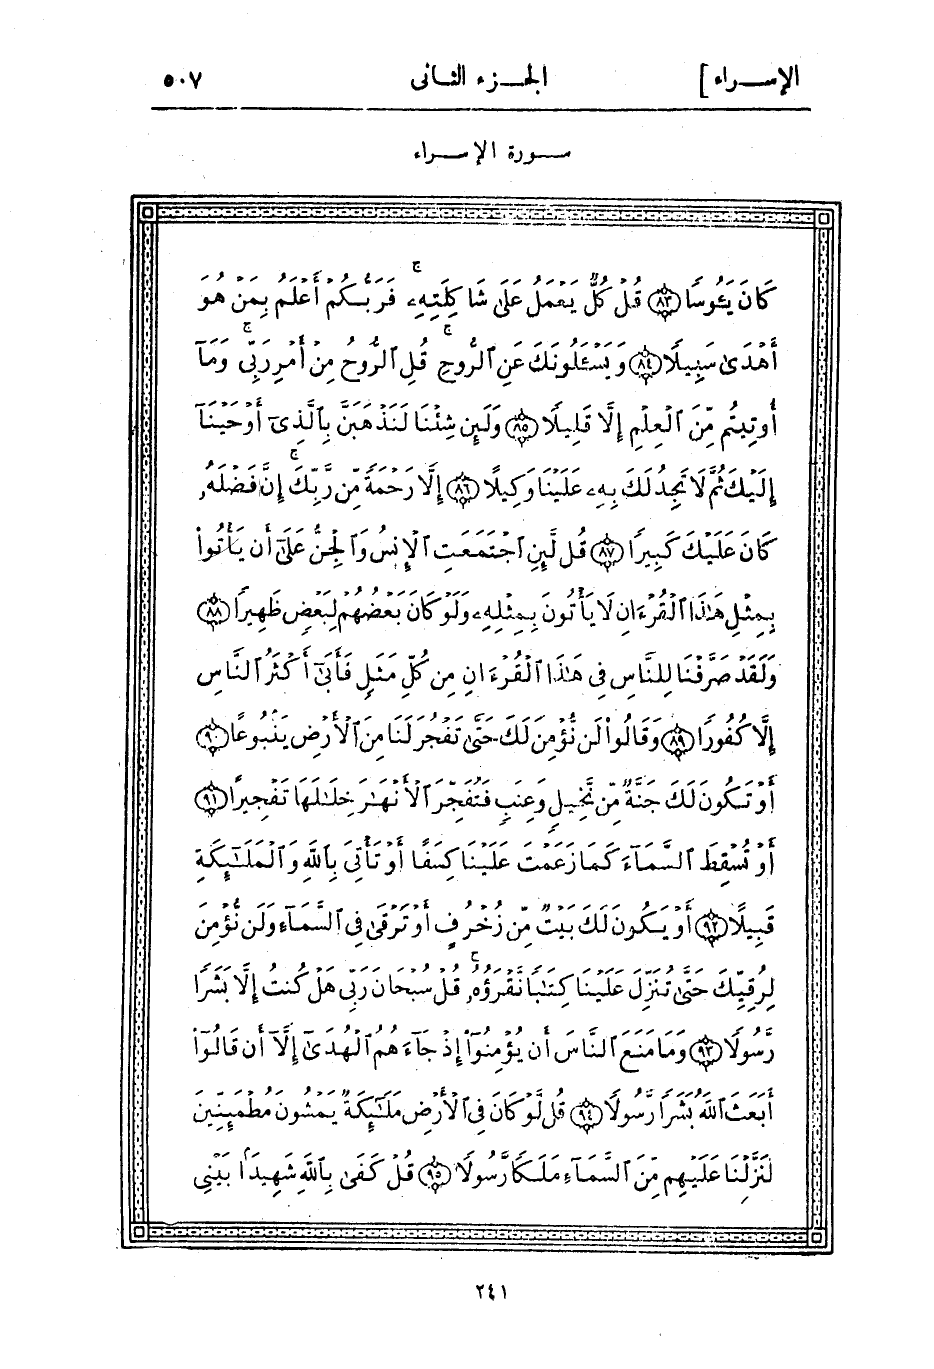 الإســراء] الجــزء الثانى ٥٠٧
ســورة الإســراء
كَانَ يَـُٔوسًا ﴿٨٣﴾ قُلْ كُلٌّ يَعْمَلُ عَلَىٰ شَاكِلَتِهِۦ ۚ فَرَبُّكُمْ أَعْلَمُ بِمَنْ هُوَ
أَهْدَىٰ سَبِيلًا ﴿٨٤﴾ وَيَسْـَٔلُونَكَ عَنِ ٱلرُّوحِ ۚ قُلِ ٱلرُّوحُ مِنْ أَمْرِ رَبِّى ۚ وَمَآ
أُوتِيتُم مِّنَ ٱلْعِلْمِ إِلَّا قَلِيلًا ﴿٨٥﴾ وَلَئِن شِئْنَا لَنَذْهَبَنَّ بِٱلَّذِىٓ أَوْحَيْنَآ
إِلَيْكَ ثُمَّ لَا تَجِدُ لَكَ بِهِۦ عَلَيْنَا وَكِيلًا ﴿٨٦﴾ إِلَّا رَحْمَةً مِّن رَّبِّكَ ۚ إِنَّ فَضْلَهُۥ
كَانَ عَلَيْكَ كَبِيرًا ﴿٨٧﴾ قُل لَّئِنِ ٱجْتَمَعَتِ ٱلْإِنسُ وَٱلْجِنُّ عَلَىٰٓ أَن يَأْتُوا۟
بِمِثْلِ هَـٰذَا ٱلْقُرْءَانِ لَا يَأْتُونَ بِمِثْلِهِۦ وَلَوْ كَانَ بَعْضُهُمْ لِبَعْضٍ ظَهِيرًا ﴿٨٨﴾
وَلَقَدْ صَرَّفْنَا لِلنَّاسِ فِى هَـٰذَا ٱلْقُرْءَانِ مِن كُلِّ مَثَلٍ فَأَبَىٰٓ أَكْثَرُ ٱلنَّاسِ
إِلَّا كُفُورًا ﴿٨٩﴾ وَقَالُوا۟ لَن نُّؤْمِنَ لَكَ حَتَّىٰ تَفْجُرَ لَنَا مِنَ ٱلْأَرْضِ يَنۢبُوعًا ﴿٩٠﴾
أَوْ تَكُونَ لَكَ جَنَّةٌ مِّن نَّخِيلٍ وَعِنَبٍ فَتُفَجِّرَ ٱلْأَنْهَـٰرَ خِلَـٰلَهَا تَفْجِيرًا ﴿٩١﴾
أَوْ تُسْقِطَ ٱلسَّمَآءَ كَمَا زَعَمْتَ عَلَيْنَا كِسَفًا أَوْ تَأْتِىَ بِٱللَّهِ وَٱلْمَلَـٰٓئِكَةِ
قَبِيلًا ﴿٩٢﴾ أَوْ يَكُونَ لَكَ بَيْتٌ مِّن زُخْرُفٍ أَوْ تَرْقَىٰ فِى ٱلسَّمَآءِ وَلَن نُّؤْمِنَ
لِرُقِيِّكَ حَتَّىٰ تُنَزِّلَ عَلَيْنَا كِتَـٰبًا نَّقْرَؤُهُۥ ۗ قُلْ سُبْحَانَ رَبِّى هَلْ كُنتُ إِلَّا بَشَرًا
رَّسُولًا ﴿٩٣﴾ وَمَا مَنَعَ ٱلنَّاسَ أَن يُؤْمِنُوٓا۟ إِذْ جَآءَهُمُ ٱلْهُدَىٰٓ إِلَّآ أَن قَالُوٓا۟
أَبَعَثَ ٱللَّهُ بَشَرًا رَّسُولًا ﴿٩٤﴾ قُل لَّوْ كَانَ فِى ٱلْأَرْضِ مَلَـٰٓئِكَةٌ يَمْشُونَ مُطْمَئِنِّينَ
لَنَزَّلْنَا عَلَيْهِم مِّنَ ٱلسَّمَآءِ مَلَكًا رَّسُولًا ﴿٩٥﴾ قُلْ كَفَىٰ بِٱللَّهِ شَهِيدًۢا بَيْنِى
٢٤١